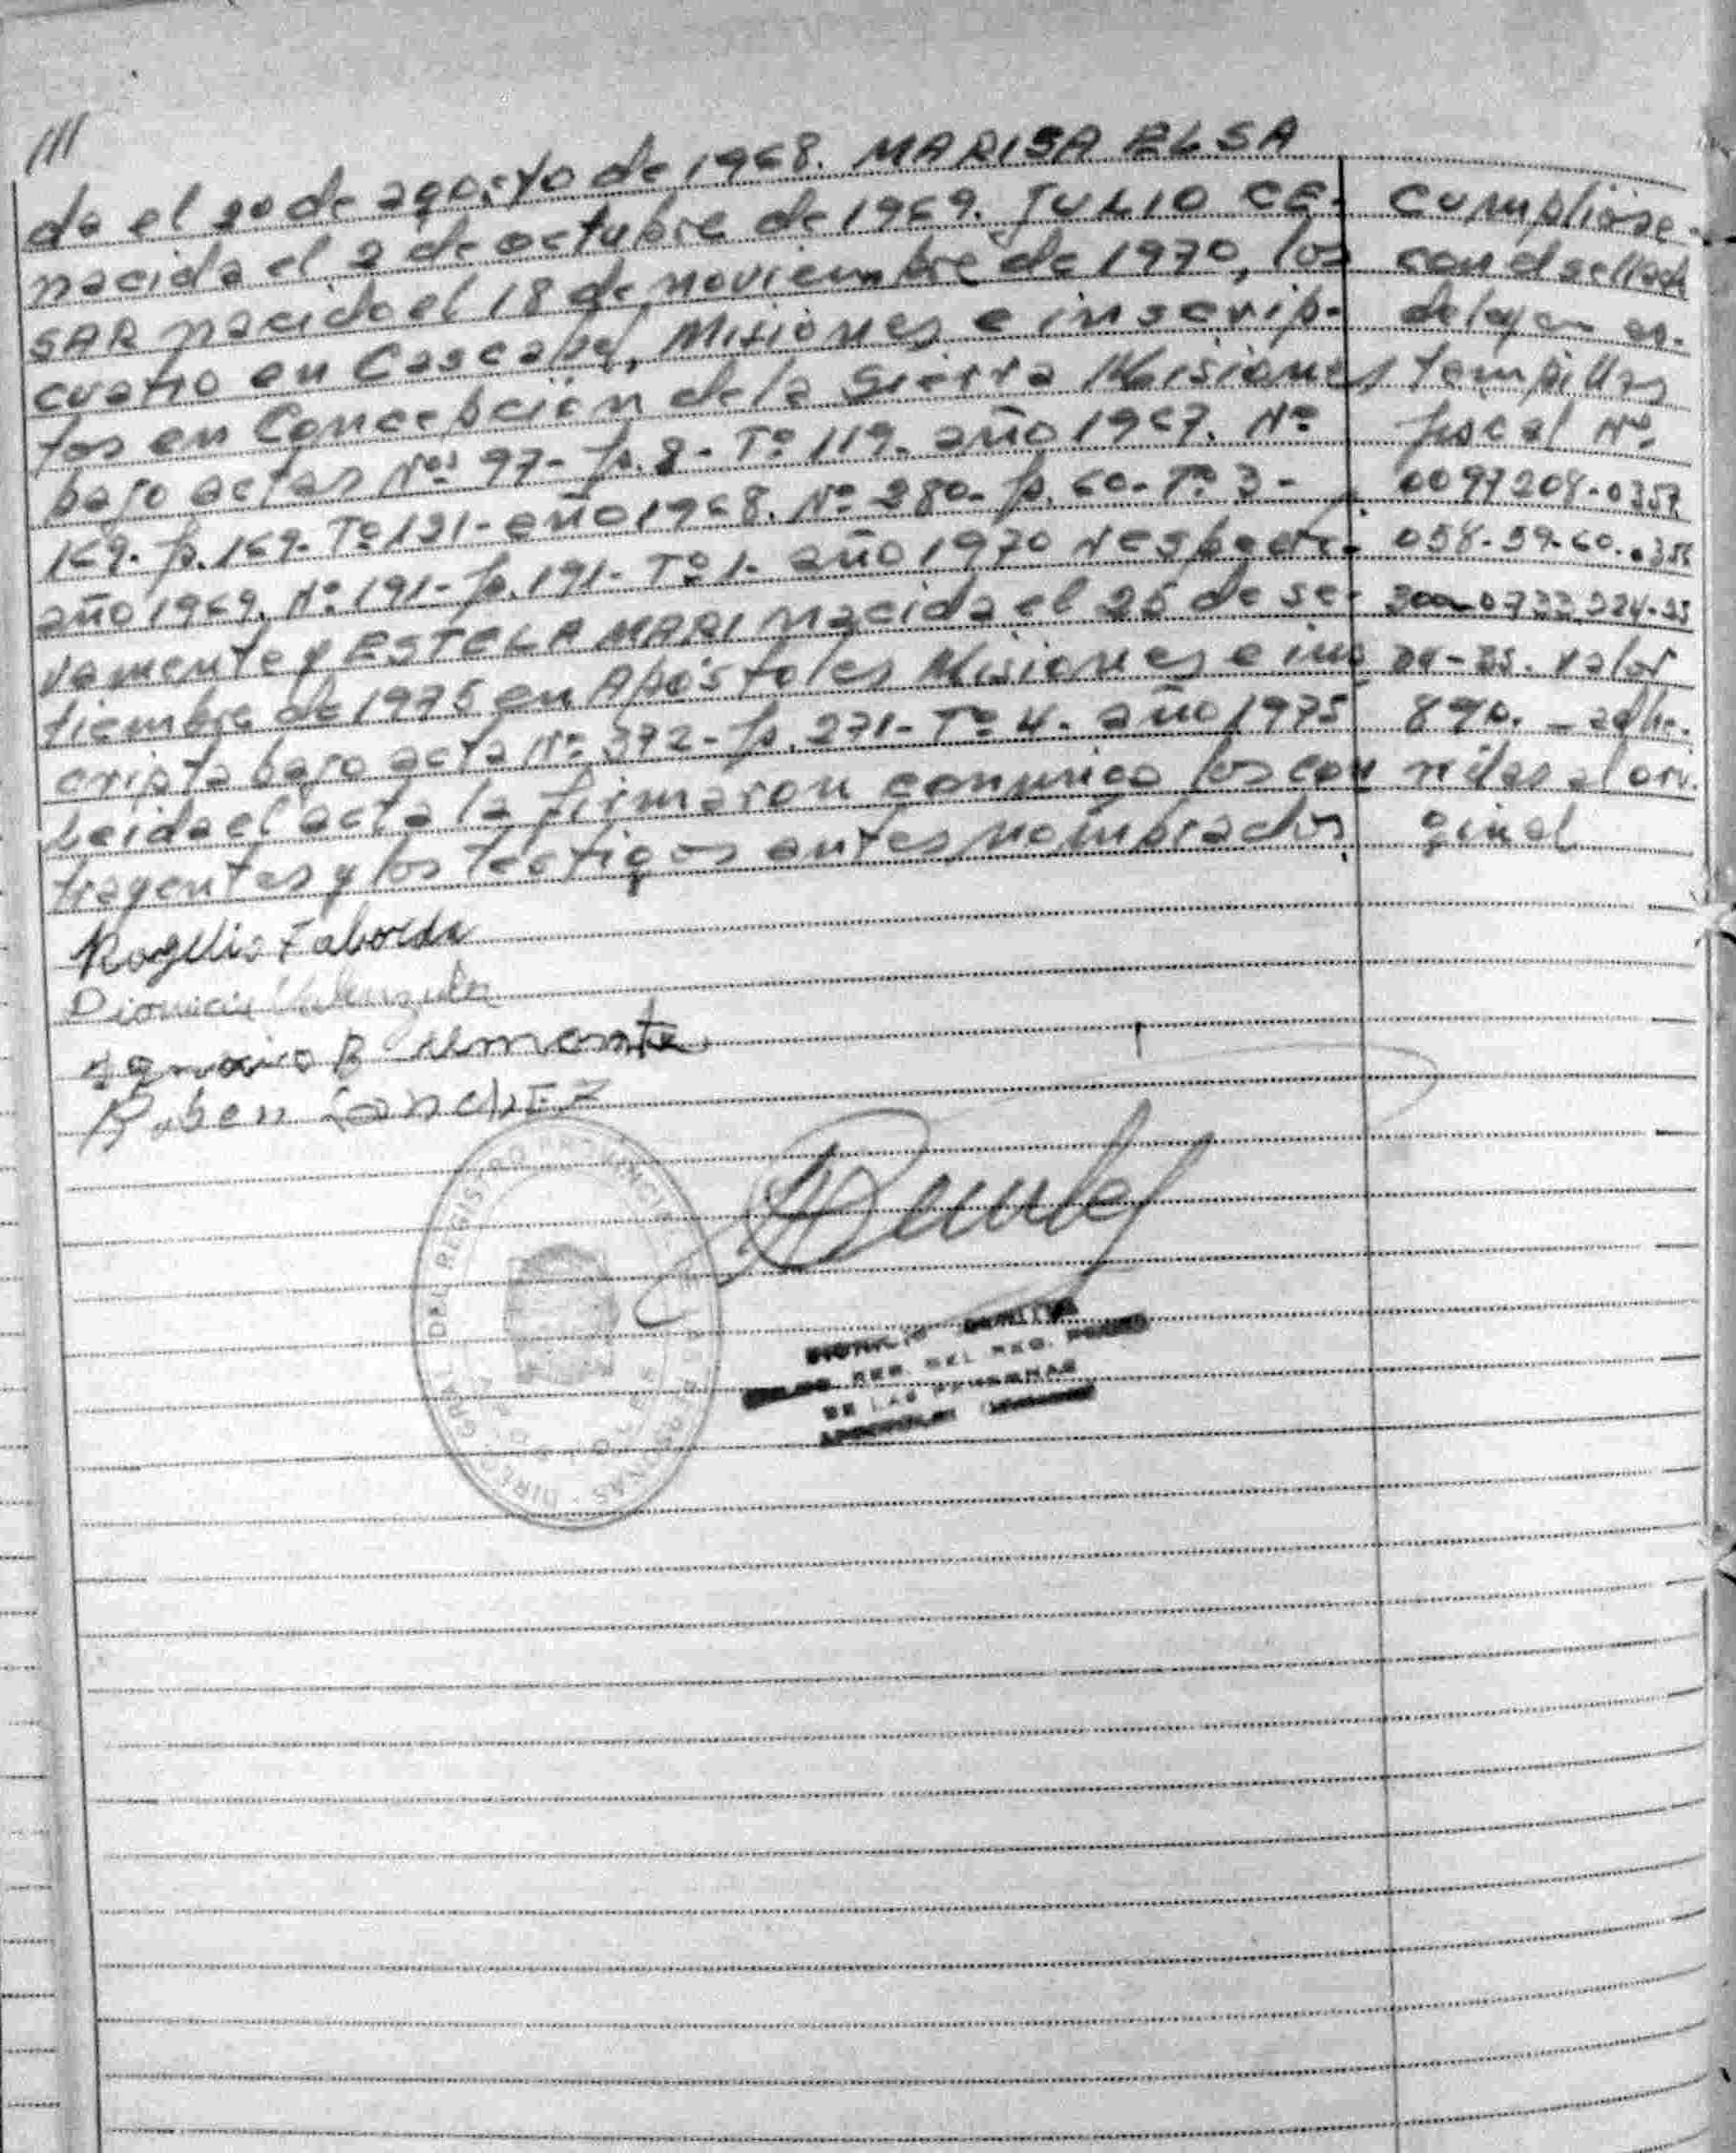 ///
da el 20 de agosto de 1968. MARISA ELSA
nacida el 2 de octubre de 1969. JULIO CE-
SAR nacido el 18 de noviembre de 1970, los
cuatro en Cascabel, Misiones e inscrip-
tos en Concepción de la Sierra Misiones,
bajo actas Nos 97- f. 8- Tº 119. año 1967. Nº
169. f. 169- Tº 121- año 1968. Nº 280- f. 60- Tº 3-
año 1969. Nº 191- f. 191- Tº 1- año 1970 respecti-
vamente y ESTELA MARI nacida el 25 de se-
tiembre de 1975 en Apóstoles Misiones e ins
cripta bajo acta Nº 372- f. 271- Tº 4- año 1975
Leida el acta la firmaron conmigo los con
trayentes y los testigos antes nombrados
Cumplióse
con el sellado
de ley en es-
tampillas
fiscal Nº
0097208-0357
058-59-60-
valor
890. - adhe-
ridas al ori-
ginal
Rogelio Taborda
Dionicia Valenzuela
Ignacio B
Ruben SanchEZ
DIREC GRAL DEL REGISTRO PROVINCIAL DE LAS PERSONAS
DEL REG.
DE LAS PERSONAS